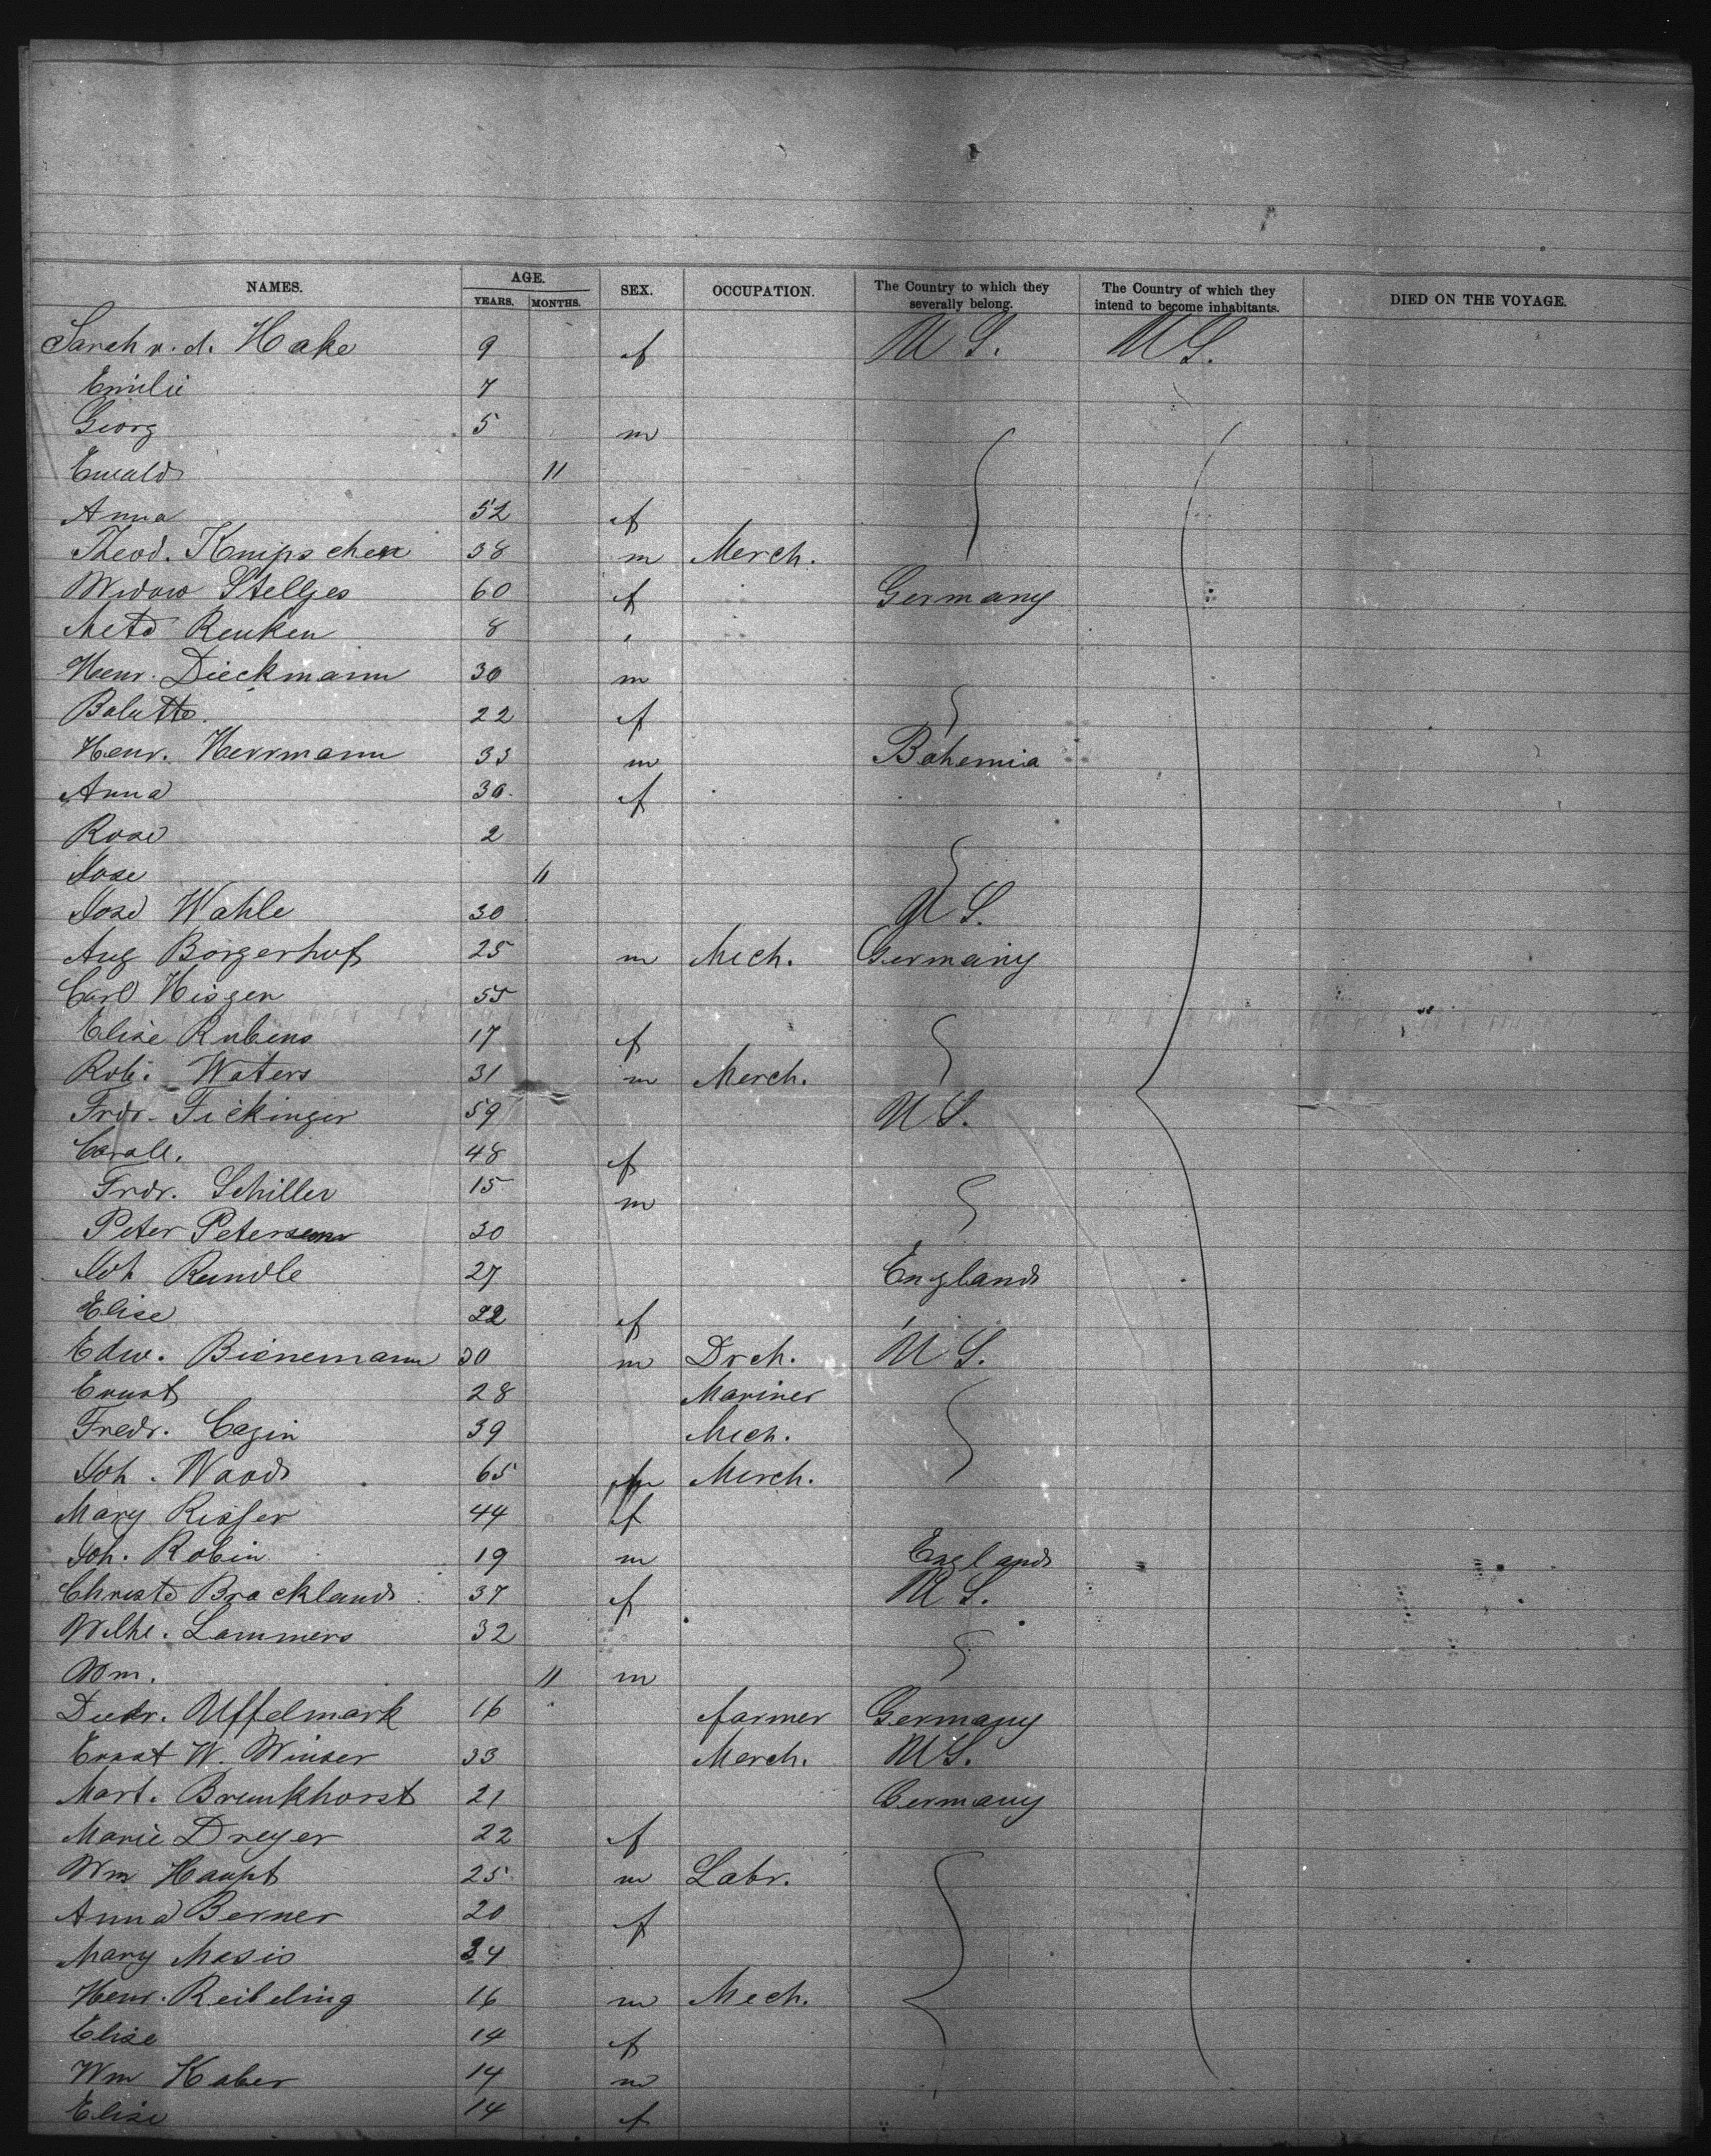 NAMES. AGE. YEARS. MONTHS. SEX. OCCUPATION. The Country to which they severally belong. The Country of which they intend to become inhabitants. DIED ON THE VOYAGE.
Sarah v. d. Hake 9 f U S. U S.
Emilie 7
Georg 5 m
Ewald 11
Anna 52 f
Theod. Knipschen 38 m Merch.
Widow Stelljes 60 f Germany
Meta Renken 8 "
Henr. Dieckmann 30 m
22 f
Henr. Herrmann 33 m Bohemia
Anna 30 f
Rosa 2
Jose 11
Wahle 30 U S.
Aug Borgerhof 25 m Mech. Germany
Carl Hisgen 55
Elise Rubens 17 f
Rob. Waters 31 m Merch.
Frdr. Fickinger 59 U S.
Carol. 48 f
Frdr. Schiller 15 m
Peter Petersen 30
Joh Rundle 27 England
Elise 22 f "
Edw. Bienemann 30 m Drch. U S.
Ernst 28 Mariner
Fredr. Cazin 39 Mech.
Joh. Wood 65 m Merch.
Mary Risser 44 f
Joh. Robin 19 m England
Brackland 37 f U S.
Wilhe. Lammers 32
Wm. 11 m
Diedr. Uffelmark 16 farmer Germany
Ernst W. Winser 33 Merch. U S.
Mart. Brunkhorst 21 Germany
Marie Dreyer 22 f
Wm Haupt 25 m Labr.
Anna Berner 20 f
Mary 34
Henr. Reibeling 16 m Mech.
Elise 14 f
Wm Kaber 14 m
Elise 14 f